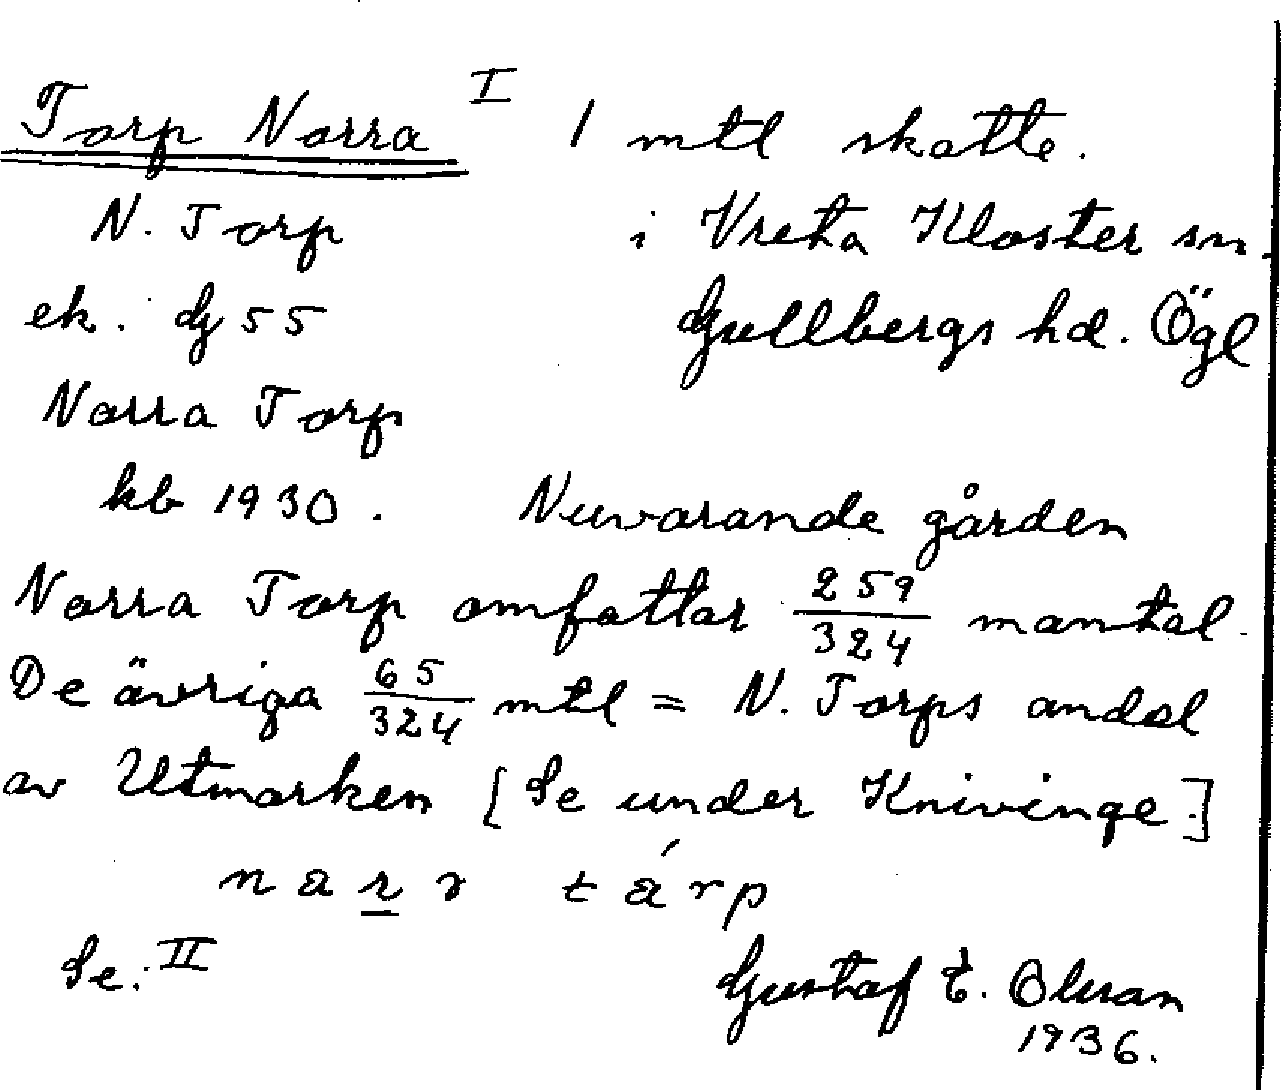 Torp Norra I 1 mtl skatte.
N. Torp i Vreta Kloster sn.
ek. dg 55 Gullbergs hd. Ögl
Norra Torp
kb 1930. Nuvarande gården
Norra Torp omfattar 259/324 mantal.
De övriga 65/324 mtl = N. Torps andel
av Utmarken [Se under Knivinge.]
Se. II Gustaf E. Olsson
1936.